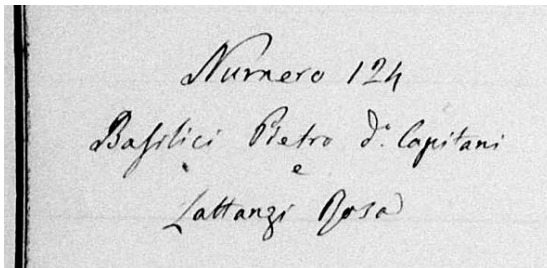 Numero 124
Basilici Pietro d.º Capitani
e
Lattanzi Rosa